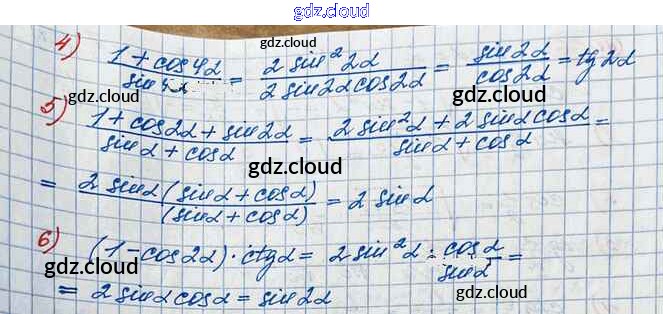 gdz.cloud
4) (1 + cos 4α)/(sin 4α) = (2 sin² 2α)/(2 sin 2α cos 2α) = (sin 2α)/(cos 2α) = tg 2α
gdz.cloud
gdz.cloud
5) (1 + cos 2α + sin 2α)/(sin α + cos α) = (2 sin² α + 2 sin α cos α)/(sin α + cos α) =
gdz.cloud
gdz.cloud
gdz.cloud
= (2 sin α (sin α + cos α))/((sin α + cos α)) = 2 sin α
gdz.cloud
6) (1 − cos 2α) · ctg α = 2 sin² α · (cos α)/(sin α) =
gdz.cloud
= 2 sin α cos α = sin 2α
gdz.cloud